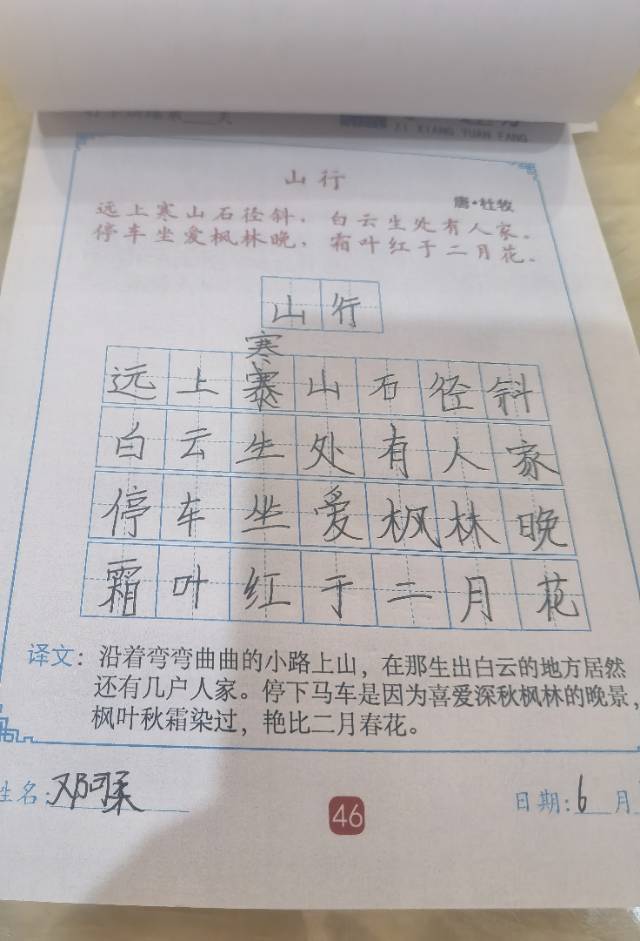 天
ZI XIANG YUAN FANG
山行
唐·杜牧
远上寒山石径斜，白云生处有人家。
停车坐爱枫林晚，霜叶红于二月花。
山行
寒
远上寒山石径斜
白云生处有人家
停车坐爱枫林晚
霜叶红于二月花
译文：沿着弯弯曲曲的小路上山，在那生出白云的地方居然
还有几户人家。停下马车是因为喜爱深秋枫林的晚景，
枫叶秋霜染过，艳比二月春花。
姓名：邓阿柔
46
日期：6月